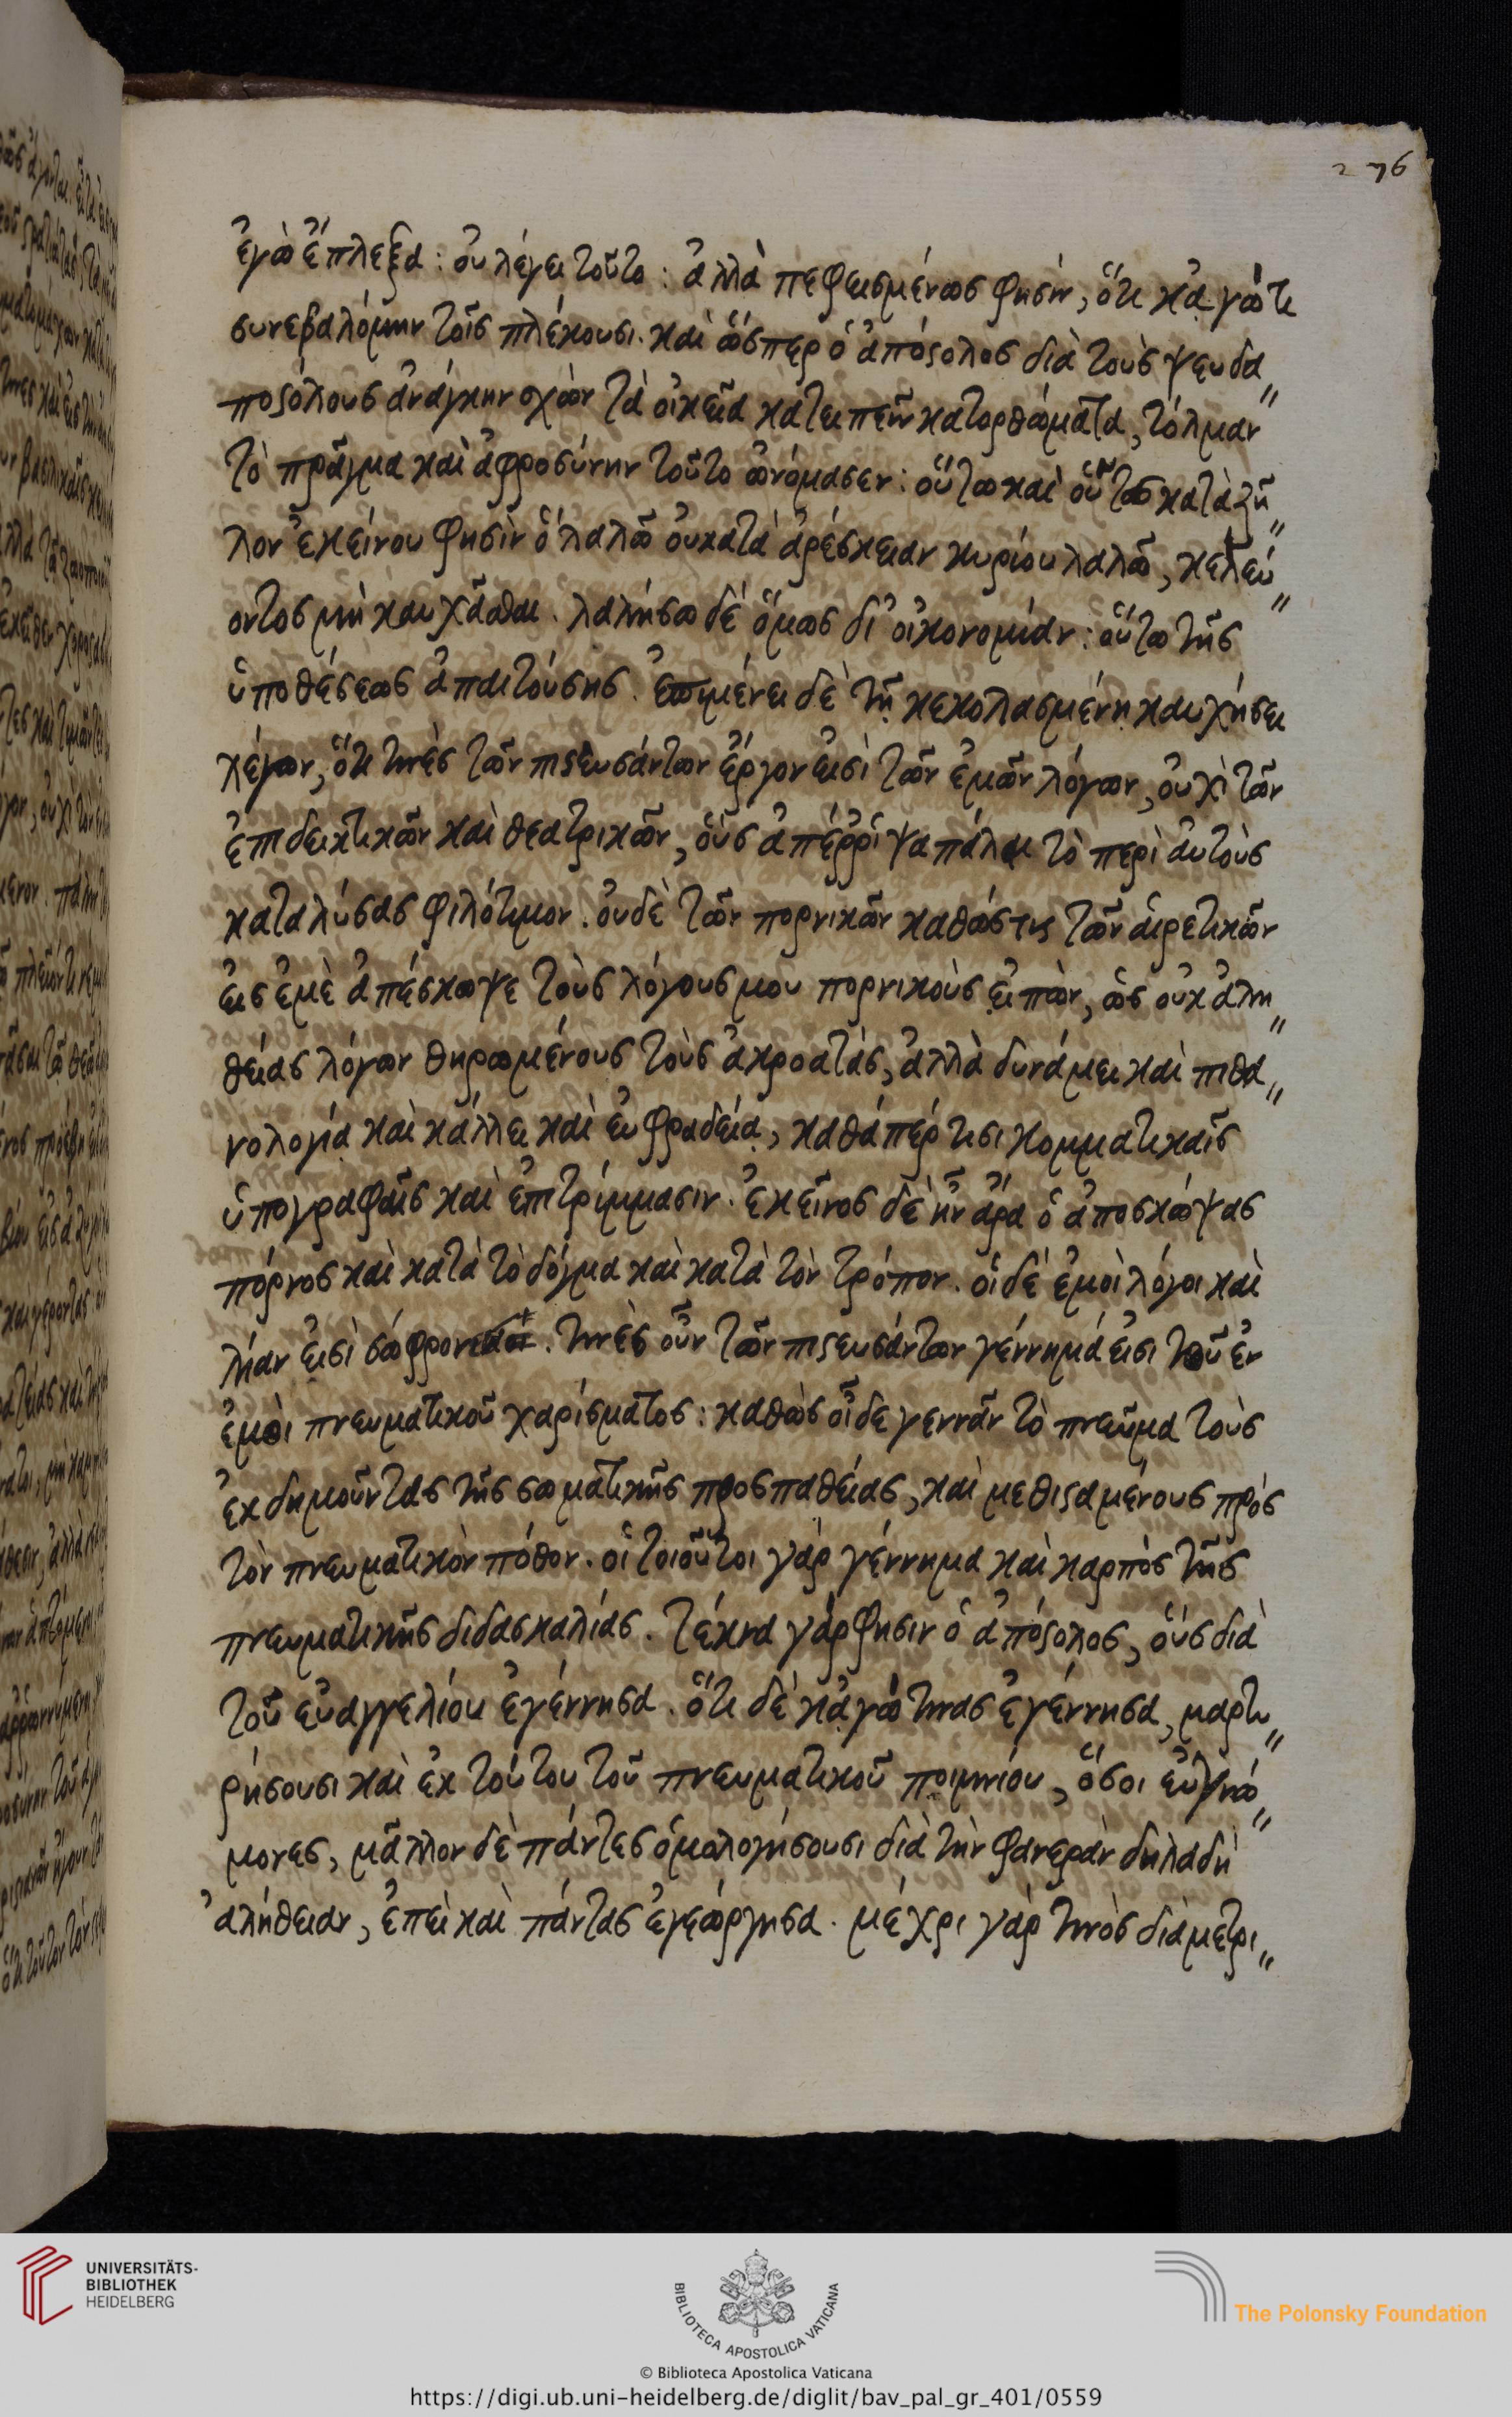 276
ἐγὼ ἔπλεξα: οὐ λέγει τοῦτο: ἀλλὰ πεφεισμένως φησὶν, ὅτι κᾀγώ τι
συνεβαλόμην τοῖς πλέκουσι. καὶ ὥσπερ ὁ ἀπόστολος διὰ τοὺς ψευδα〃
ποστόλους ἀνάγκην σχὼν τὰ οἰκεῖα κατειπεῖν κατορθώματα, τόλμαν
τὸ πρᾶγμα καὶ ἀφροσύνην τοῦτο ὠνόμασεν: οὕτω καὶ οὗτος κατὰ ζῆ〃
λον ἐκείνου φησὶν ὃ λαλῶ οὐ κατὰ ἀρέσκειαν κυρίου λαλῶ, κελεύ〃
οντος μὴ καυχᾶσθαι. λαλήσω δὲ ὅμως δι' οἰκονομίαν: οὕτω τῆς
ὑποθέσεως ἀπαιτούσης. ἐπιμένει δὲ τῇ κεκολασμένῃ καυχήσει
λέγων, ὅτι τινὲς τῶν πιστευσάντων ἔργον εἰσὶ τῶν ἐμῶν λόγων, οὐχὶ τῶν
ἐπιδεικτικῶν καὶ θεατρικῶν, οὓς ἀπέῤῥιψα πάλαι τὸ περὶ αὐτοὺς
καταλύσας φιλότιμον. οὐδὲ τῶν πορνικῶν καθώς τις τῶν αἱρετικῶν
εἰς ἐμὲ ἀπέσκωψε τοὺς λόγους μου πορνικοὺς εἰπὼν, ὡς οὐκ ἀλη〃
θείας λόγων θηρωμένους τοὺς ἀκροατάς, ἀλλὰ δυνάμει καὶ πιθα〃
νολογίᾳ καὶ κάλλει καὶ εὐφραδείᾳ, καθάπέρ τισι κομματικαῖς
ὑπογραφαῖς καὶ ἐπιτρίμμασιν. ἐκεῖνος δὲ ἦν ἄρα ὁ ἀποσκώψας
πόρνος καὶ κατὰ τὸ δόγμα καὶ κατὰ τὸν τρόπον. οἱ δὲ ἐμοὶ λόγοι καὶ
λίαν εἰσὶ σώφρονες. τινὲς οὖν τῶν πιστευσάντων γέννημά εἰσι τοῦ ἐν
ἐμοὶ πνευματικοῦ χαρίσματος: καθὼς οἶδε γεννᾶν τὸ πνεῦμα τοὺς
ἐκδημοῦντας τῆς σωματικῆς προσπαθείας, καὶ μεθισταμένους πρὸς
τὸν πνευματικὸν πόθον. οἱ τοιοῦτοι γὰρ γέννημα καὶ καρπὸς τῆς
πνευματικῆς διδασκαλίας. τέκνα γάρ φησιν ὁ ἀπόστολος, οὓς διὰ
τοῦ εὐαγγελίου ἐγέννησα. ὅτι δὲ κᾀγώ τινας ἐγέννησα, μαρτυ〃
ρήσουσι καὶ ἐκ τούτου τοῦ πνευματικοῦ ποιμνίου, ὅσοι εὐγνώ〃
μονες, μᾶλλον δὲ πάντες ὁμολογήσουσι διὰ τὴν φανερὰν δηλαδὴ
ἀλήθειαν, ἐπεὶ καὶ πάντας ἐγεώργησα. μέχρι γάρ τινὸς διὰ μετρι〃
UNIVERSITÄTS-
BIBLIOTHEK
HEIDELBERG
BIBLIOTECA APOSTOLICA VATICANA
The Polonsky Foundation
© Biblioteca Apostolica Vaticana
https://digi.ub.uni-heidelberg.de/diglit/bav_pal_gr_401/0559